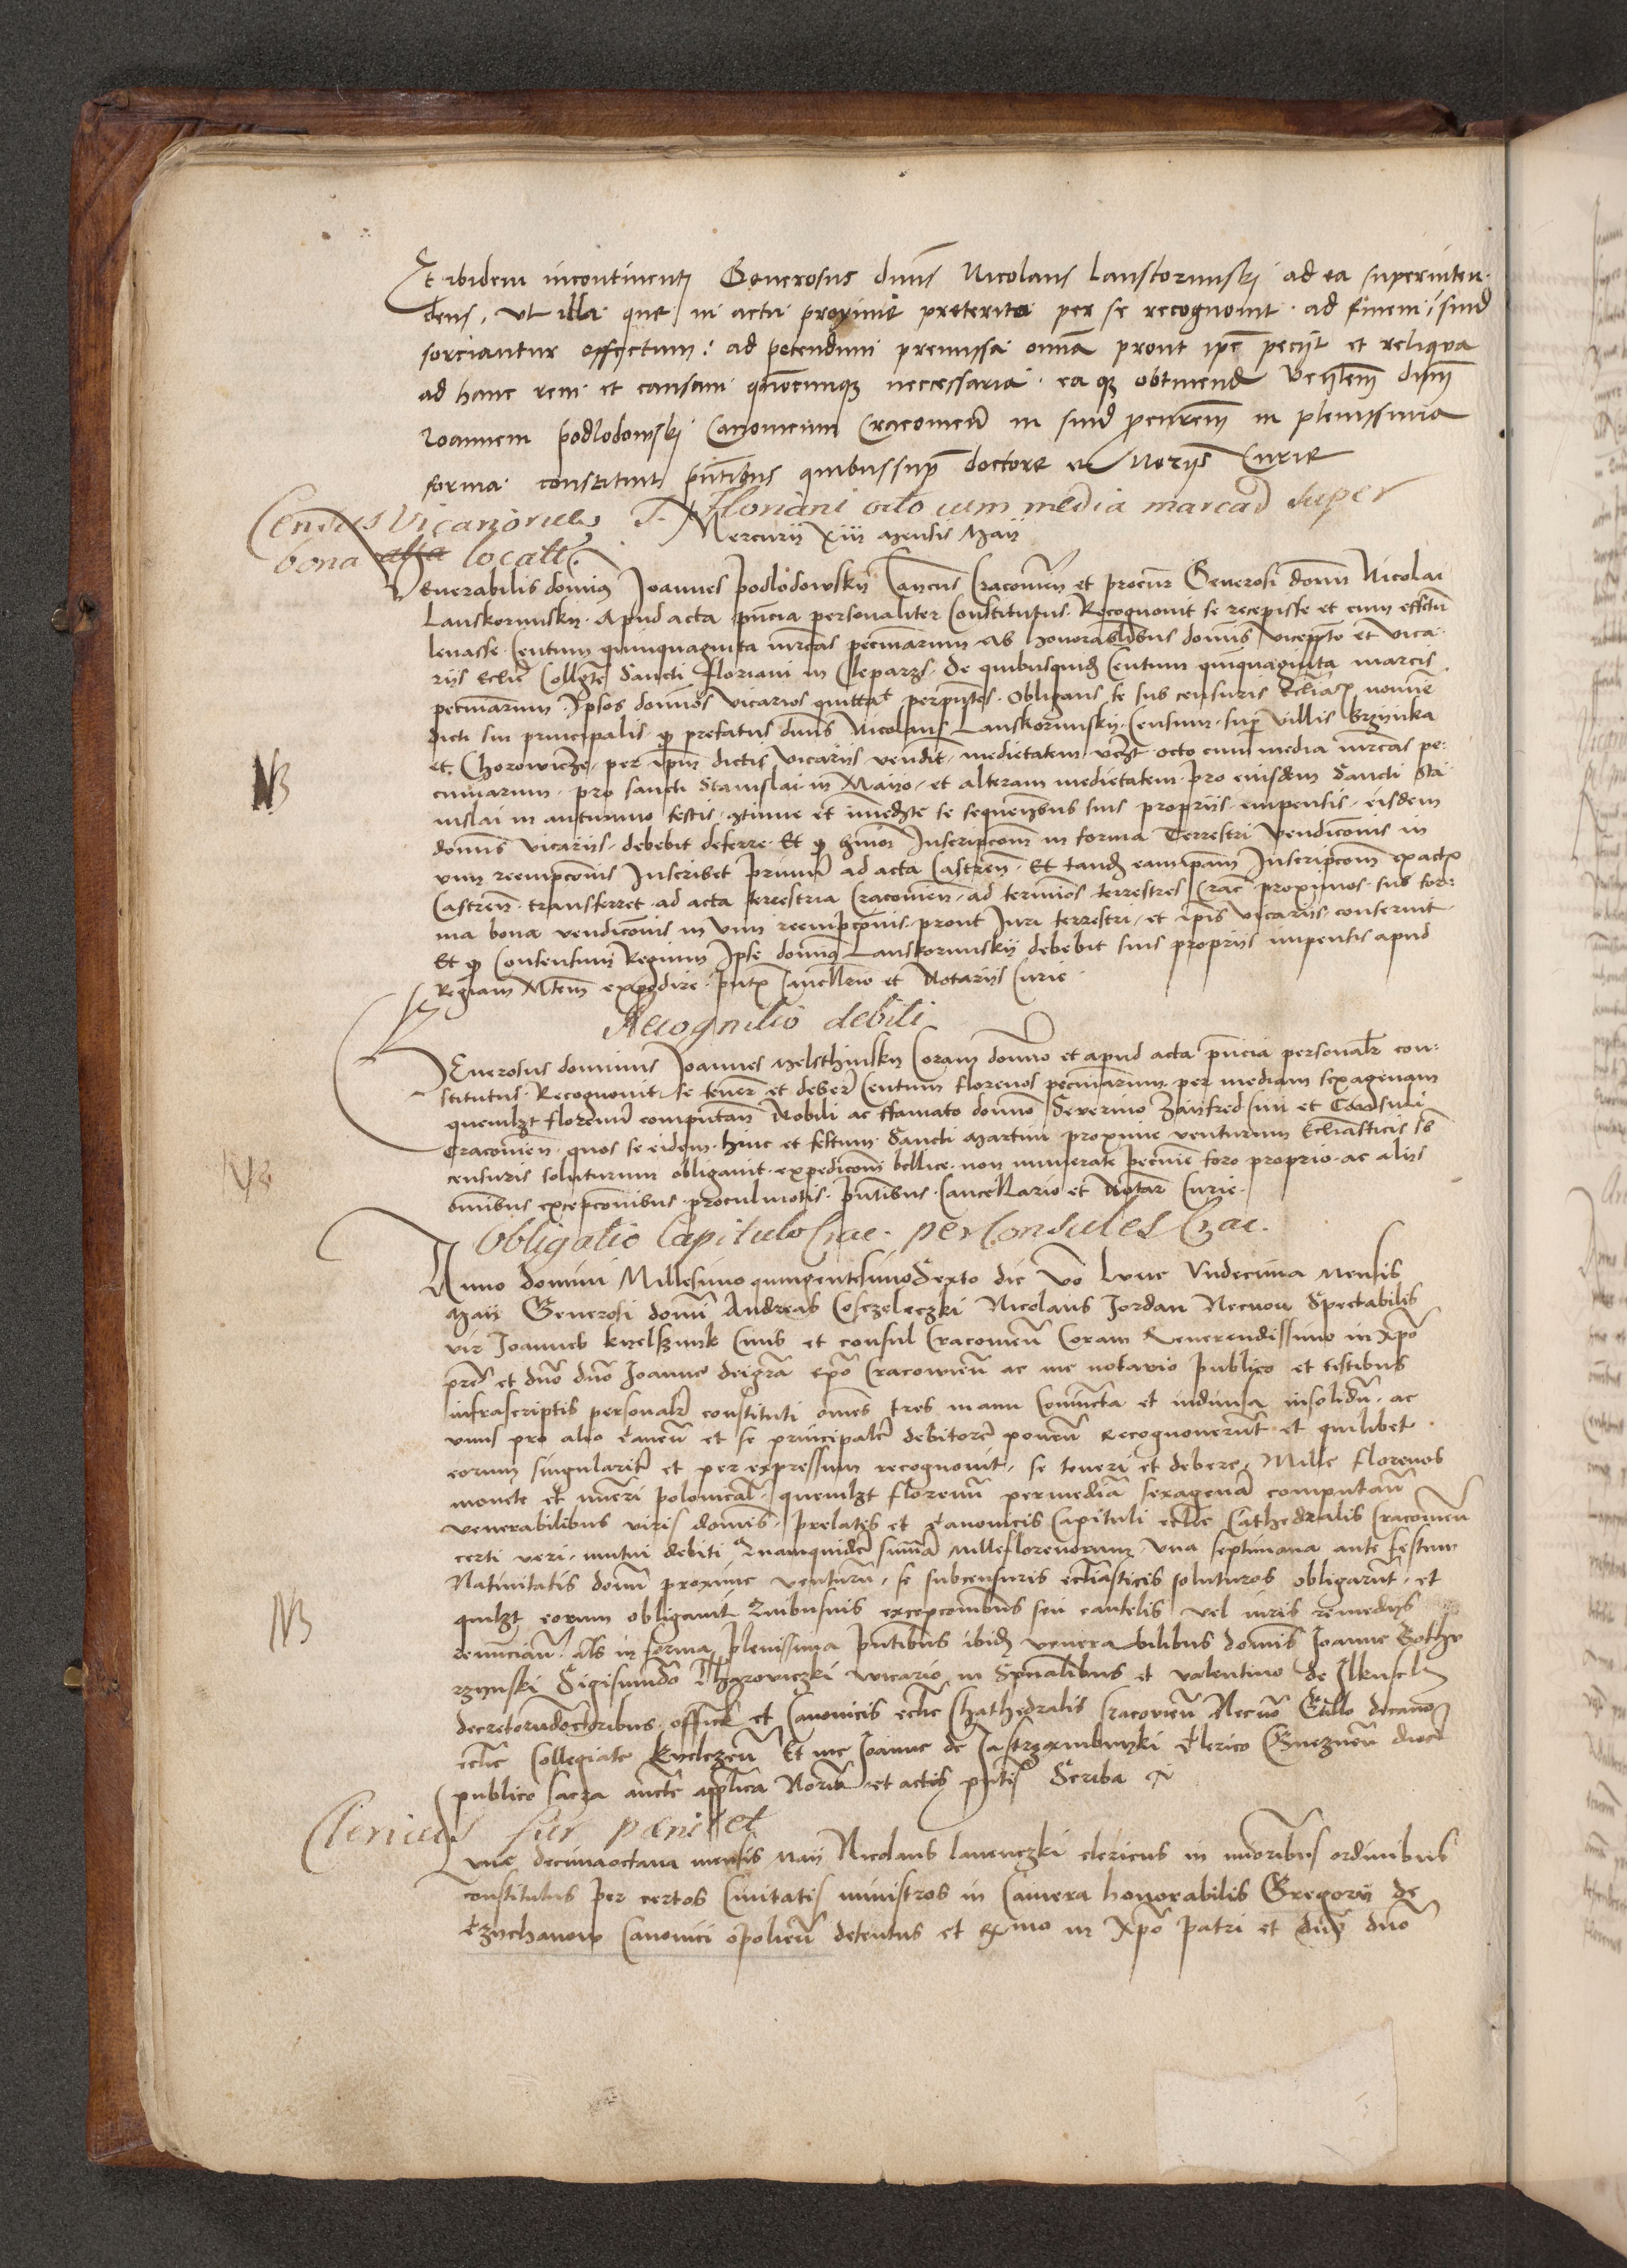 Et ibidem incontinenti Generosus dūns Nicolaus Lanskorunski ad ea superinten-
dens, ut illa que in actu proxime preterito per se recognovit ad finem suud
sorciantur effectum: ad petendum premissa omīa prout ipē peciit et reliqua
ad hanc rem et causam quōcunqz neccessaria eaqz obtinend Venlem dnm
Ioannem podlodowski Canonicum Cracovien in suud procurem in plenissima
forma constituit pntibus quibus supr doctore et Noriis Curie
Census Vicariorum S. Floriani octo cum media marcas super
bona locatt
Mercurii xiii mensis Maii
Venerabilis dominus Joannes podlodowsky Cancus Cracovien et procur Generosi domī Nicolai
Lanskorunsky. Apud acta pncia personaliter Constitutus. Recognovit se recepisse et cum effctu
levasse Centum quinquaginta mrcas pecuniarum ab honorabilibus domīs viceppto et vica-
riis Eclie Collegte Sancti Floriani in Cleparzs. De quibusquid Centum quinquaginta marcis
pecuniarum. Ipsos dominos vicarios quittat perpntes. Obligans se sub censuris Ecliar nomine
dicti sui principalis q prefatus dūns Nicolaus Lanskorunsky. Censum supr villis Brzyinka
et Chorowicze per ipm dictis vicariis vendit medietatem vczt octo cum media mrcas pe-
cuniarum pro sancti Stanislai in Maio et alteram medietatem pro eiusdem Sancti Sta-
nislai in autumno festis time et imedte se sequentibus suis propriis impensis eisdem
dominis vicariis debebit deferre. Et q hmoi Inscripcom in forma Terrestri vendicionis in
vim reempcionis Inscribet primum ad acta Castren. Et tand eampam Inscripcom ex actis
Castren transferret ad acta terrestria Cracovien ad terminos terrestres Crac proximos sub for-
ma bona vendicionis in vim reempcionis prout Juri terrestri et ipis vicariis conservit
Et q Consensum Regium Ipse dominus Lanskorunsky debebit suis propriis impensis apud
Regiam Mtem expedire. pntx Cancellrio et Notariis Curie.
Recognitio debiti
Generosus dominus Joannes Melsthinsky Coram domino et apud acta pncia personalr con-
stitutus. Recognovit se tener et deber Centum florenos pecuniarum per mediam sexagenam
quemlzt florenum computan Nobili ac ffamato domino Severino Banfred Civi et Consuli
Cracovien quos se eidem hinc et festum Sancti Martini proxime venturum Ecliasticis sb
censuris soluturum obligavit. expedicioni bellice non numerate pecunie foro proprio ac aliis
omibus excepcionibus procul motis. pntibus Cancellario et Notar Curie.
Obligatio Capitulo Crac. per Consules Crac.
Anno Domini Millesimo quingentesimo Sexto die vo Lune Undecima Mensis
Maii Generosi domi Andreas Cosczeleczki Nicolaus Jordan Necnon Spectabilis
vir Joannes kyelszynk Civis et consul Cracovien Coram Reverendissimo in Xpo
pre et dno dno Joanne dei gra epo Cracovien ac me notario publico et testibus
infrascriptis personalr constituti omes tres manu Coniuncta et indivisa insolidu ac
unus pro alio caven et se principalr debitore ponen recognoverut et quilibet
eorum singulariter et per expressum recognovit se teneri et debere Mille florenos
monete et nueri polonicar quemlzt florenu per media sexagena computan
venerabilibus viris domis prelatis et canonicis Capituli eclie Cathedralis Cracovien
certi veri mutui debiti Quamquide suma mille florenorum una septimana ante festum
Nativitatis domi proxime ventura se sub censuris ecliasticis soluturos obligarut et
quilzt eorum obligavit Quibusvis excepcionibus seu cautelis vel iuris remediis
renuncian. als in forma plenissima pntibus ibid venerabilibus domis Joanne Gothy-
rzynski Sigismundo Tharowiczki vicario in Spualibus et valentino de Ilkusch
decretorudoctoribus offici et Canonicis eclie Chathedralis Cracovien Necno decano
eclie Collegiate kyelczen Et me Joanne de Jastrzambnyki clerico Gneznen dioc
publico sacra aucte applica Norio et actis pnti Scriba
Clericus fur panitet
Lune decimaoctava mensis Maii Nicolaus Lavenczki clericus in minoribus ordinibus
constitutus per certos Civitatis ministros in Camera honorabilis Gregorii de
Czychanow Canonici opolien detentus et Rmo in Xpo patri et dno dno
NB
NB
NB